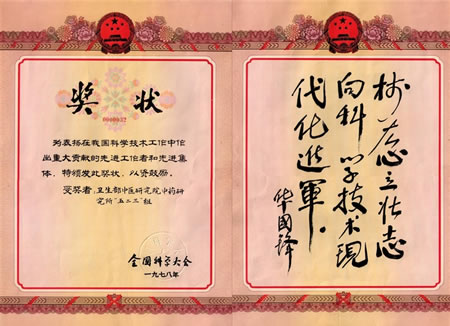 奖状
为表扬在我国科学技术工作中作
出重大贡献的先进工作者和先进集
体，特颁发此奖状，以资鼓励。
受奖者：卫生部中医研究院中药研
究所"五二三"组
全国科学大会
一九七八年
树雄心立壮志
向科学技术现
代化进軍。
华国锋